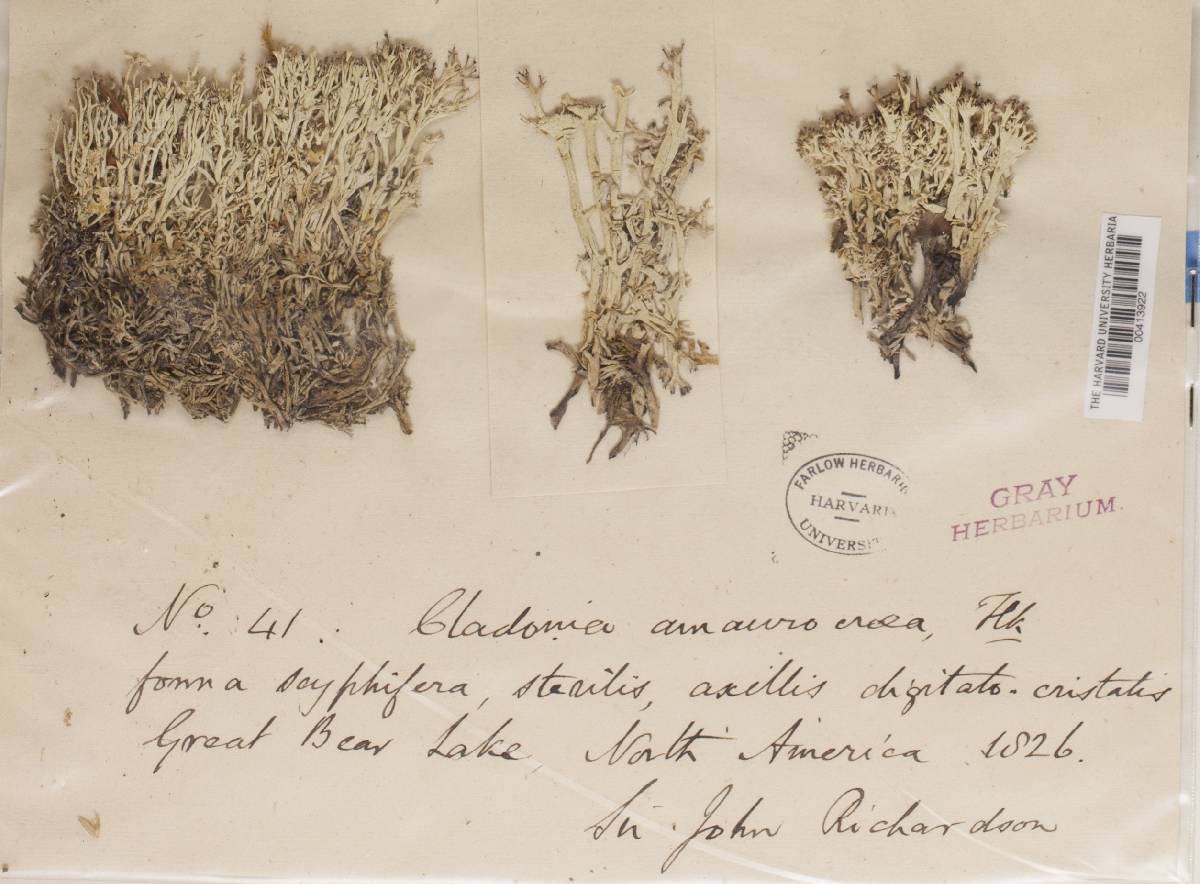 THE HARVARD UNIVERSITY HERBARIA
00413922
FARLOW HERBARIU
HARVARD
UNIVERSIT
GRAY
HERBARIUM.
No. 41. Cladonia amaurocræa, Flk
forma scyphifera, sterilis, axillis digitato-cristatis
Great Bear Lake, North America 1826.
Sir John Richardson